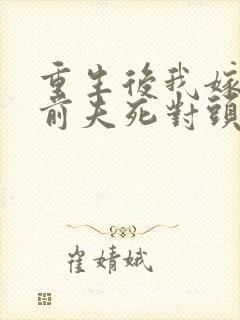 重生後我嫁
前夫死對頭
崔婧娥